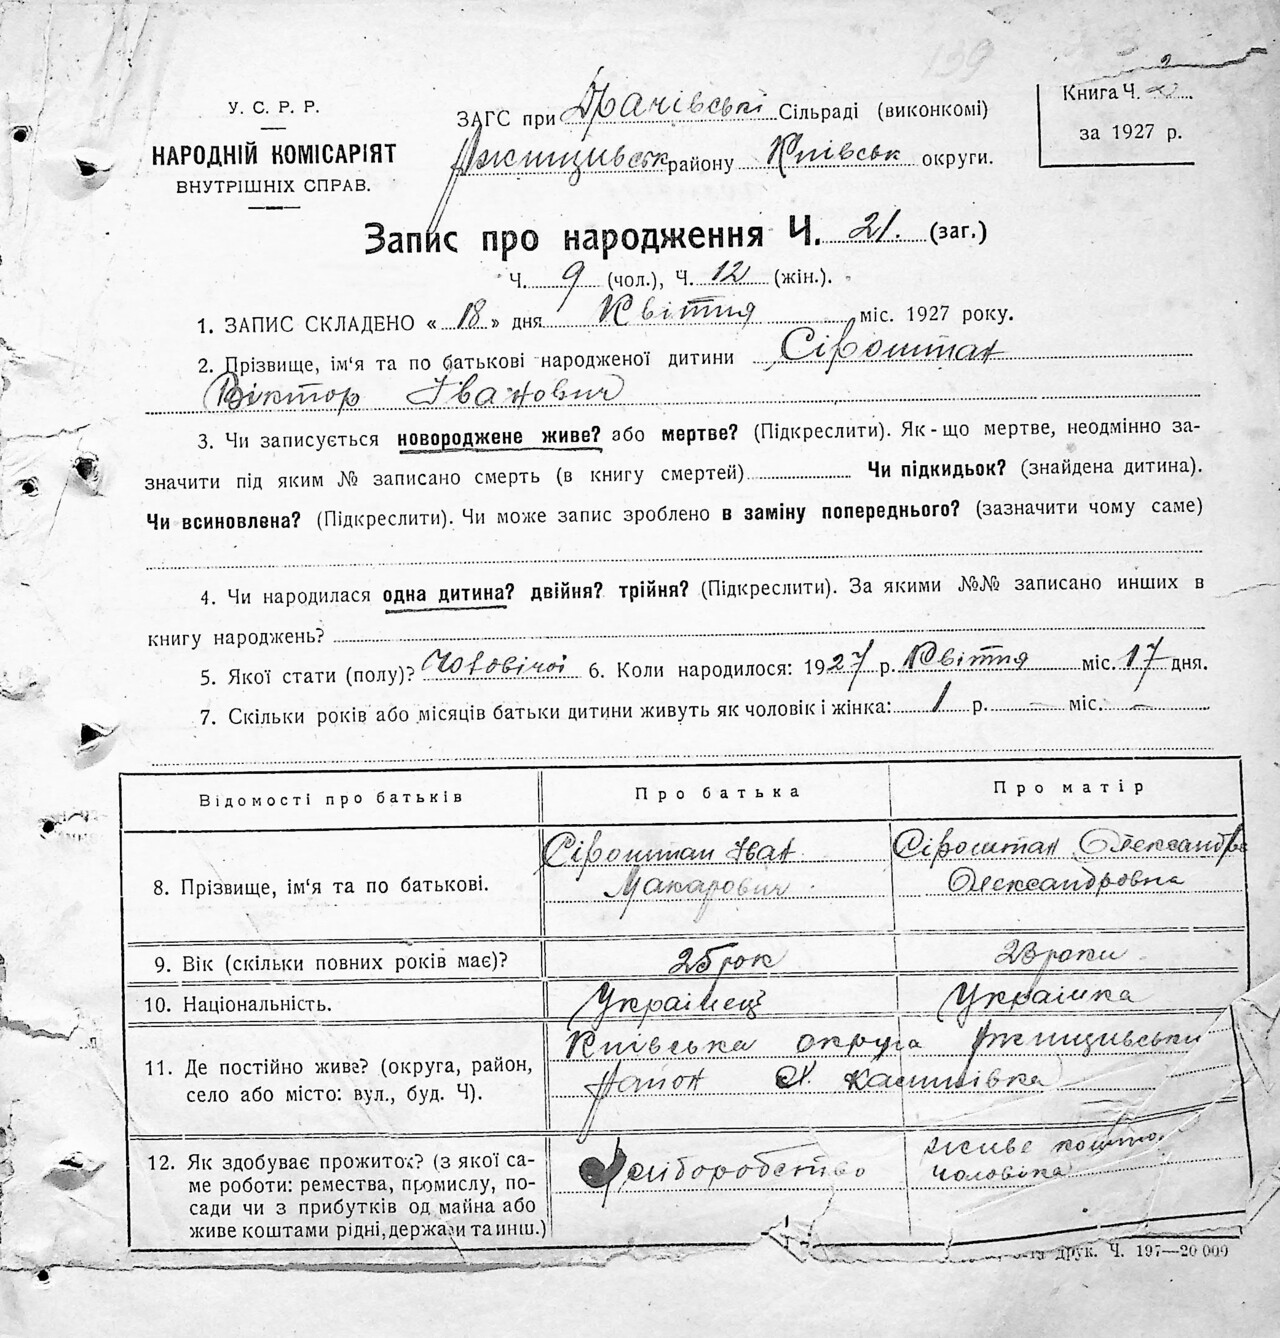 139
У. С. Р. Р.
НАРОДНІЙ КОМІСАРІЯТ
ВНУТРІШНІХ СПРАВ.
ЗАГС при Драчівські Сільраді (виконкомі)
Ржищивськ району Київськ округи.
Книга Ч. 2
за 1927 р.
Запис про народження Ч. 21. (заг.)
Ч. 9 (чол.), Ч. 12 (жін.).
1. ЗАПИС СКЛАДЕНО « 18 » дня Квітня міс. 1927 року.
2. Прізвище, ім'я та по батькові народженої дитини Сірошта́н
Віктор Іванович
3. Чи записується новороджене живе? або мертве? (Підкреслити). Як-що мертве, неодмінно за-
значити під яким № записано смерть (в книгу смертей) Чи підкидьок? (знайдена дитина).
Чи всиновлена? (Підкреслити). Чи може запис зроблено в заміну попереднього? (зазначити чому саме)
4. Чи народилася одна дитина? двійня? трійня? (Підкреслити). За якими №№ записано инших в
книгу народжень?
5. Якої стати (полу)? Чоловічої 6. Коли народилося: 1927 р. Квітня міс. 17 дня.
7. Скільки років або місяців батьки дитини живуть як чоловік і жінка: 1 р. — міс. —
Відомості про батьків
Про батька
Про матір
8. Прізвище, ім'я та по батькові.
Сірошта́н Іван
Макарович
Сірошта́н Олександра
Олександровна
9. Вік (скільки повних років має)?
25 рок
23 роки
10. Національність.
Українец
Украінка
11. Де постійно живе? (округа, район,
село або місто: вул., буд. Ч).
Київська округа Ржищивськи
район Х. Калинівка
12. Як здобуває прожиток? (з якої са-
ме роботи: ремества, промислу, по-
сади чи з прибутків од майна або
живе коштами рідні, держави та инш.)
хліборобство
живе кошт.
чоловіка
друк. Ч. 197—20 000